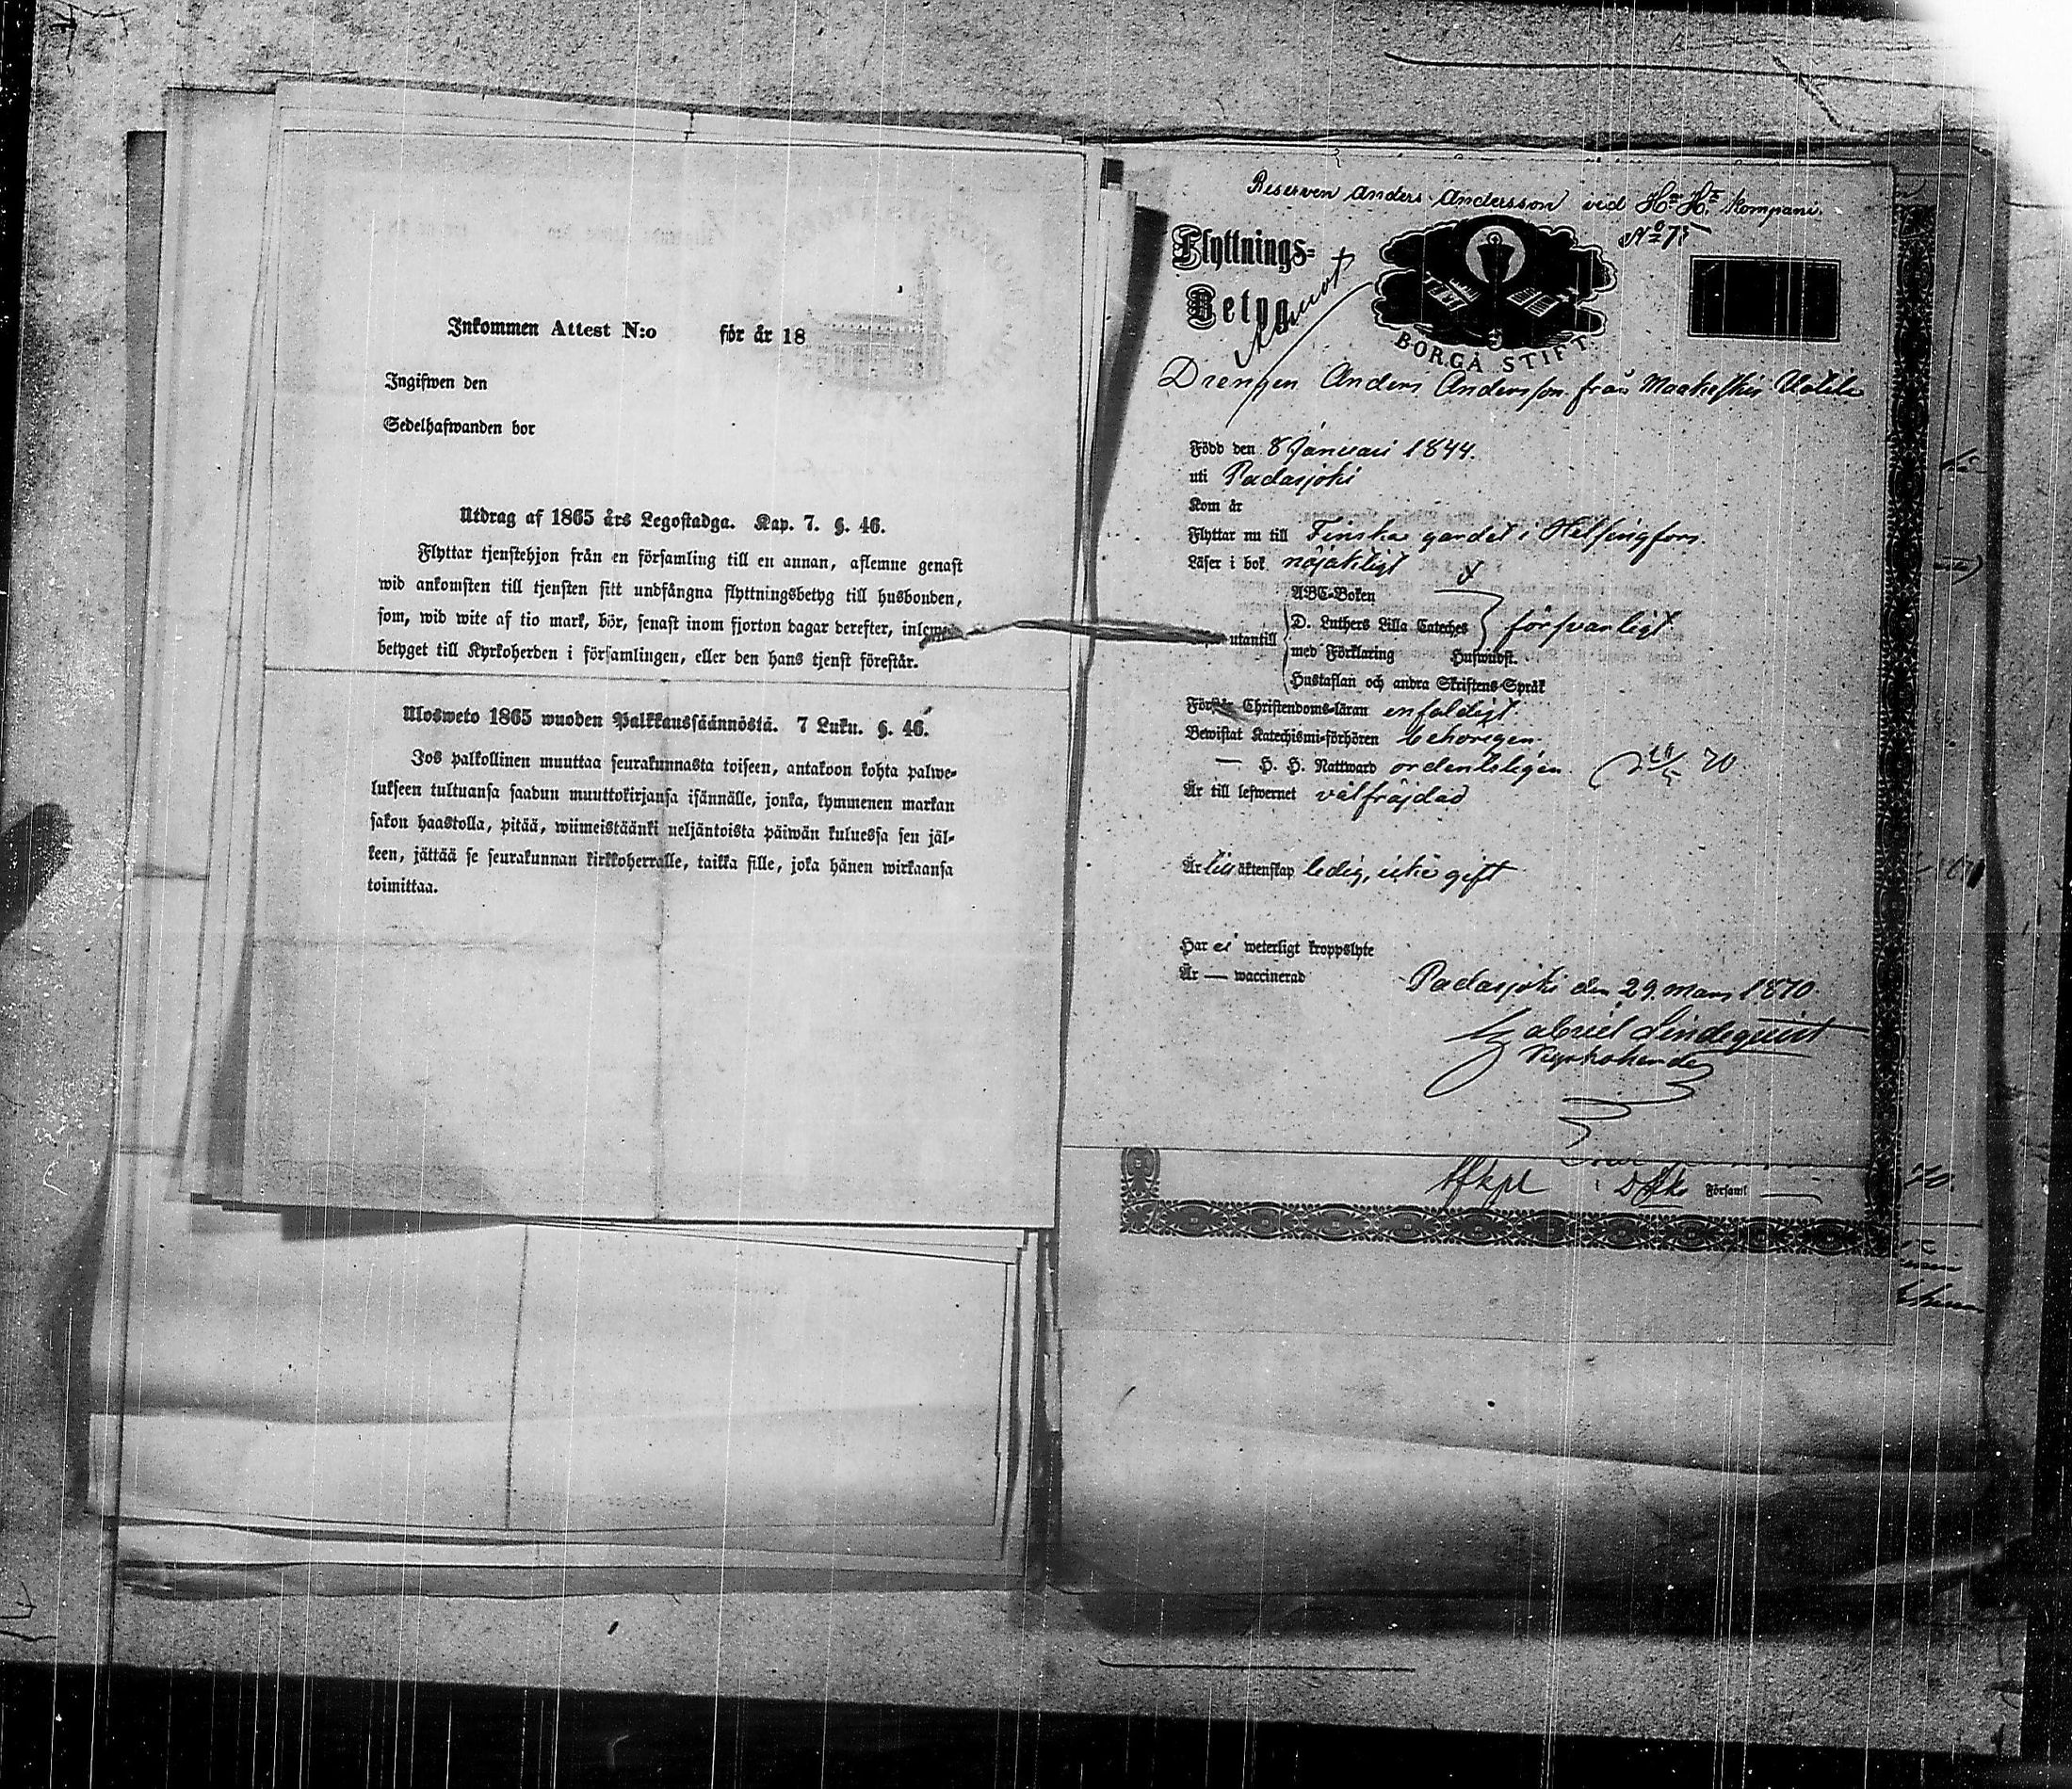 Inkommen Attest N:o för år 18
Ingifwen den
Sedelhafwanden bor
Utdrag af 1865 års Legostadga. Kap. 7. §. 46.
Flyttar tjenstehjon från en församling till en annan, aflemne genast
wid ankomsten till tjensten sitt undfångna flyttningsbetyg till husbonden,
som, wid wite af tio mark, bör, senast inom fjorton dagar derefter, inlemna
betyget till Kyrkoherden i församlingen, eller den hans tjenst förestår.
Ulosweto 1865 wuoden Palkkaussäännöstä. 7 Luku. §. 46.
Jos palkollinen muuttaa seurakunnasta toiseen, antakoon kohta palwe-
lukseen tultuansa saadun muuttokirjansa isännälle, jonka, kymmenen markan
sakon haastolla, pitää, wiimeistäänki neljäntoista päiwän kuluessa sen jäl-
keen, jättää se seurakunnan kirkkoherralle, taikka sille, joka hänen wirkaansa
toimittaa.
Reserven Anders Andersson vid H:s H:s kompani.
No 75
Flyttnings-
Betyg
BORGÅ STIFT
Drengen Anders Andersson från Maakeski
Född den 8 Januari 1844.
uti Padasjoki
Kom år
Flyttar nu till Finska gardet i Helsingfors.
Läser i bok nöjaktligt
ABC-Boken
utantill D. Luthers Lilla Cateches försvarligt
med Förklaring Hufwudst.
Hustaflan och andra Skriftens Språk
Förstår Christendoms-läran enfaldigt
Bewistat Katechismi-förhören behörigen
— H. H. Nattward ordentligen 70
Är till lefwernet välfräjdad
Är till äktenskap ledig, icke gift
Har ei weterligt kroppslyte
Är — waccinerad
Padasjoki den 29. mars 1870.
Gabriel Lindequist
Kyrkoherde
Församl